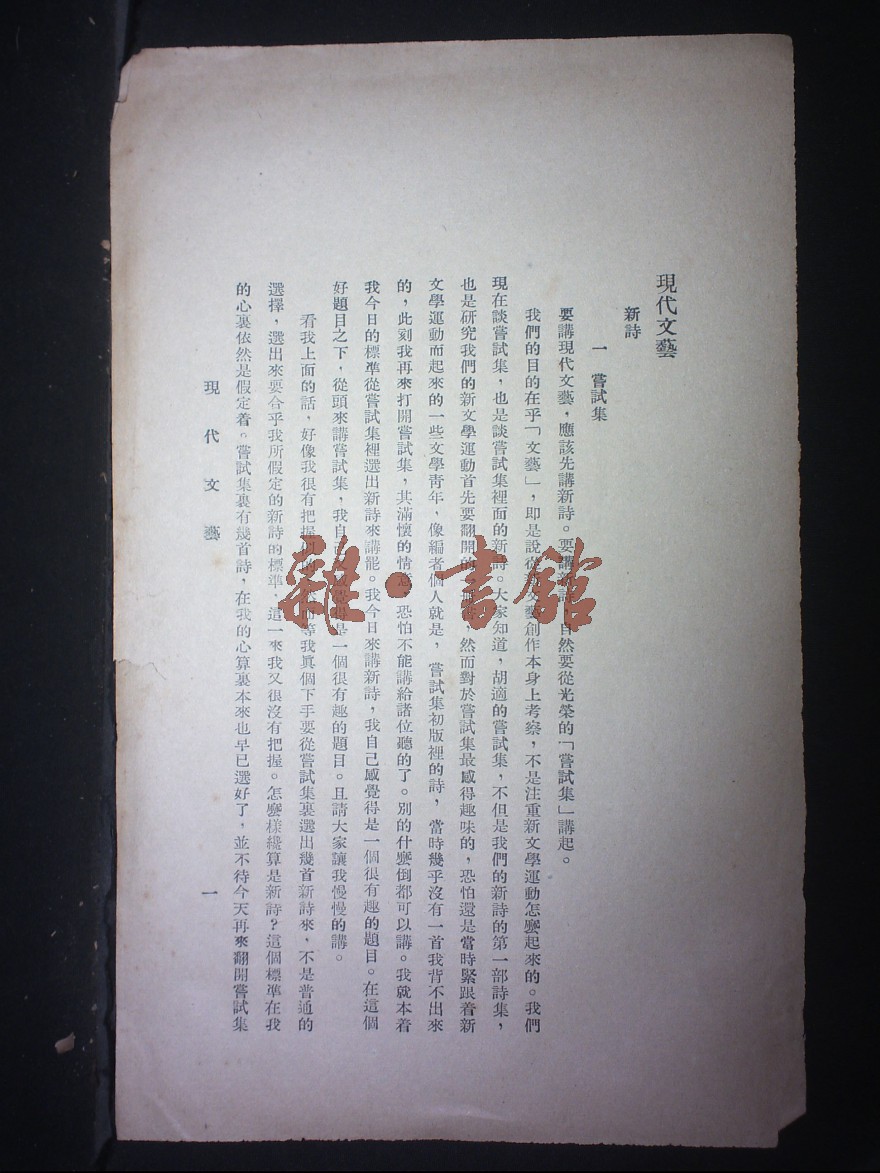 現代文藝
新詩
一　嘗試集
要講現代文藝，應該先講新詩。要講新詩，自然要從光榮的「嘗試集」講起。
我們的目的在乎「文藝」，即是說從文藝創作本身上考察，不是注重新文學運動怎麼起來的。我們
現在談嘗試集，也是談嘗試集裡面的新詩。大家知道，胡適的嘗試集，不但是我們的新詩的第一部詩集，
也是研究我們的新文學運動首先要翻開的，然而對於嘗試集最感得趣味的，恐怕還是當時緊跟着新
文學運動而起來的一些文學青年，像編者個人就是，嘗試集初版裡的詩，當時幾乎沒有一首我背不出來
的，此刻我再來打開嘗試集，其滿懷的情意，恐怕不能講給諸位聽的了。別的什麼倒都可以講。我就本着
我今日的標準從嘗試集裡選出新詩來講罷。我今日來講新詩，我自己感覺得是一個很有趣的題目。在這個
好題目之下，從頭來講嘗試集，我自己是一個很有趣的題目。且請大家讓我慢慢的講。
看我上面的話，好像我很有把握等我眞個下手要從嘗試集裏選出幾首新詩來，不是普通的
選擇，選出來要合乎我所假定的新詩的標準，這一來我又很沒有把握。怎麼樣纔算是新詩？這個標準在我
的心裏依然是假定着。嘗試集裏有幾首詩，在我的心算裏本來也早已選好了，並不待今天再來翻開嘗試集
現代文藝
一
雜·書館